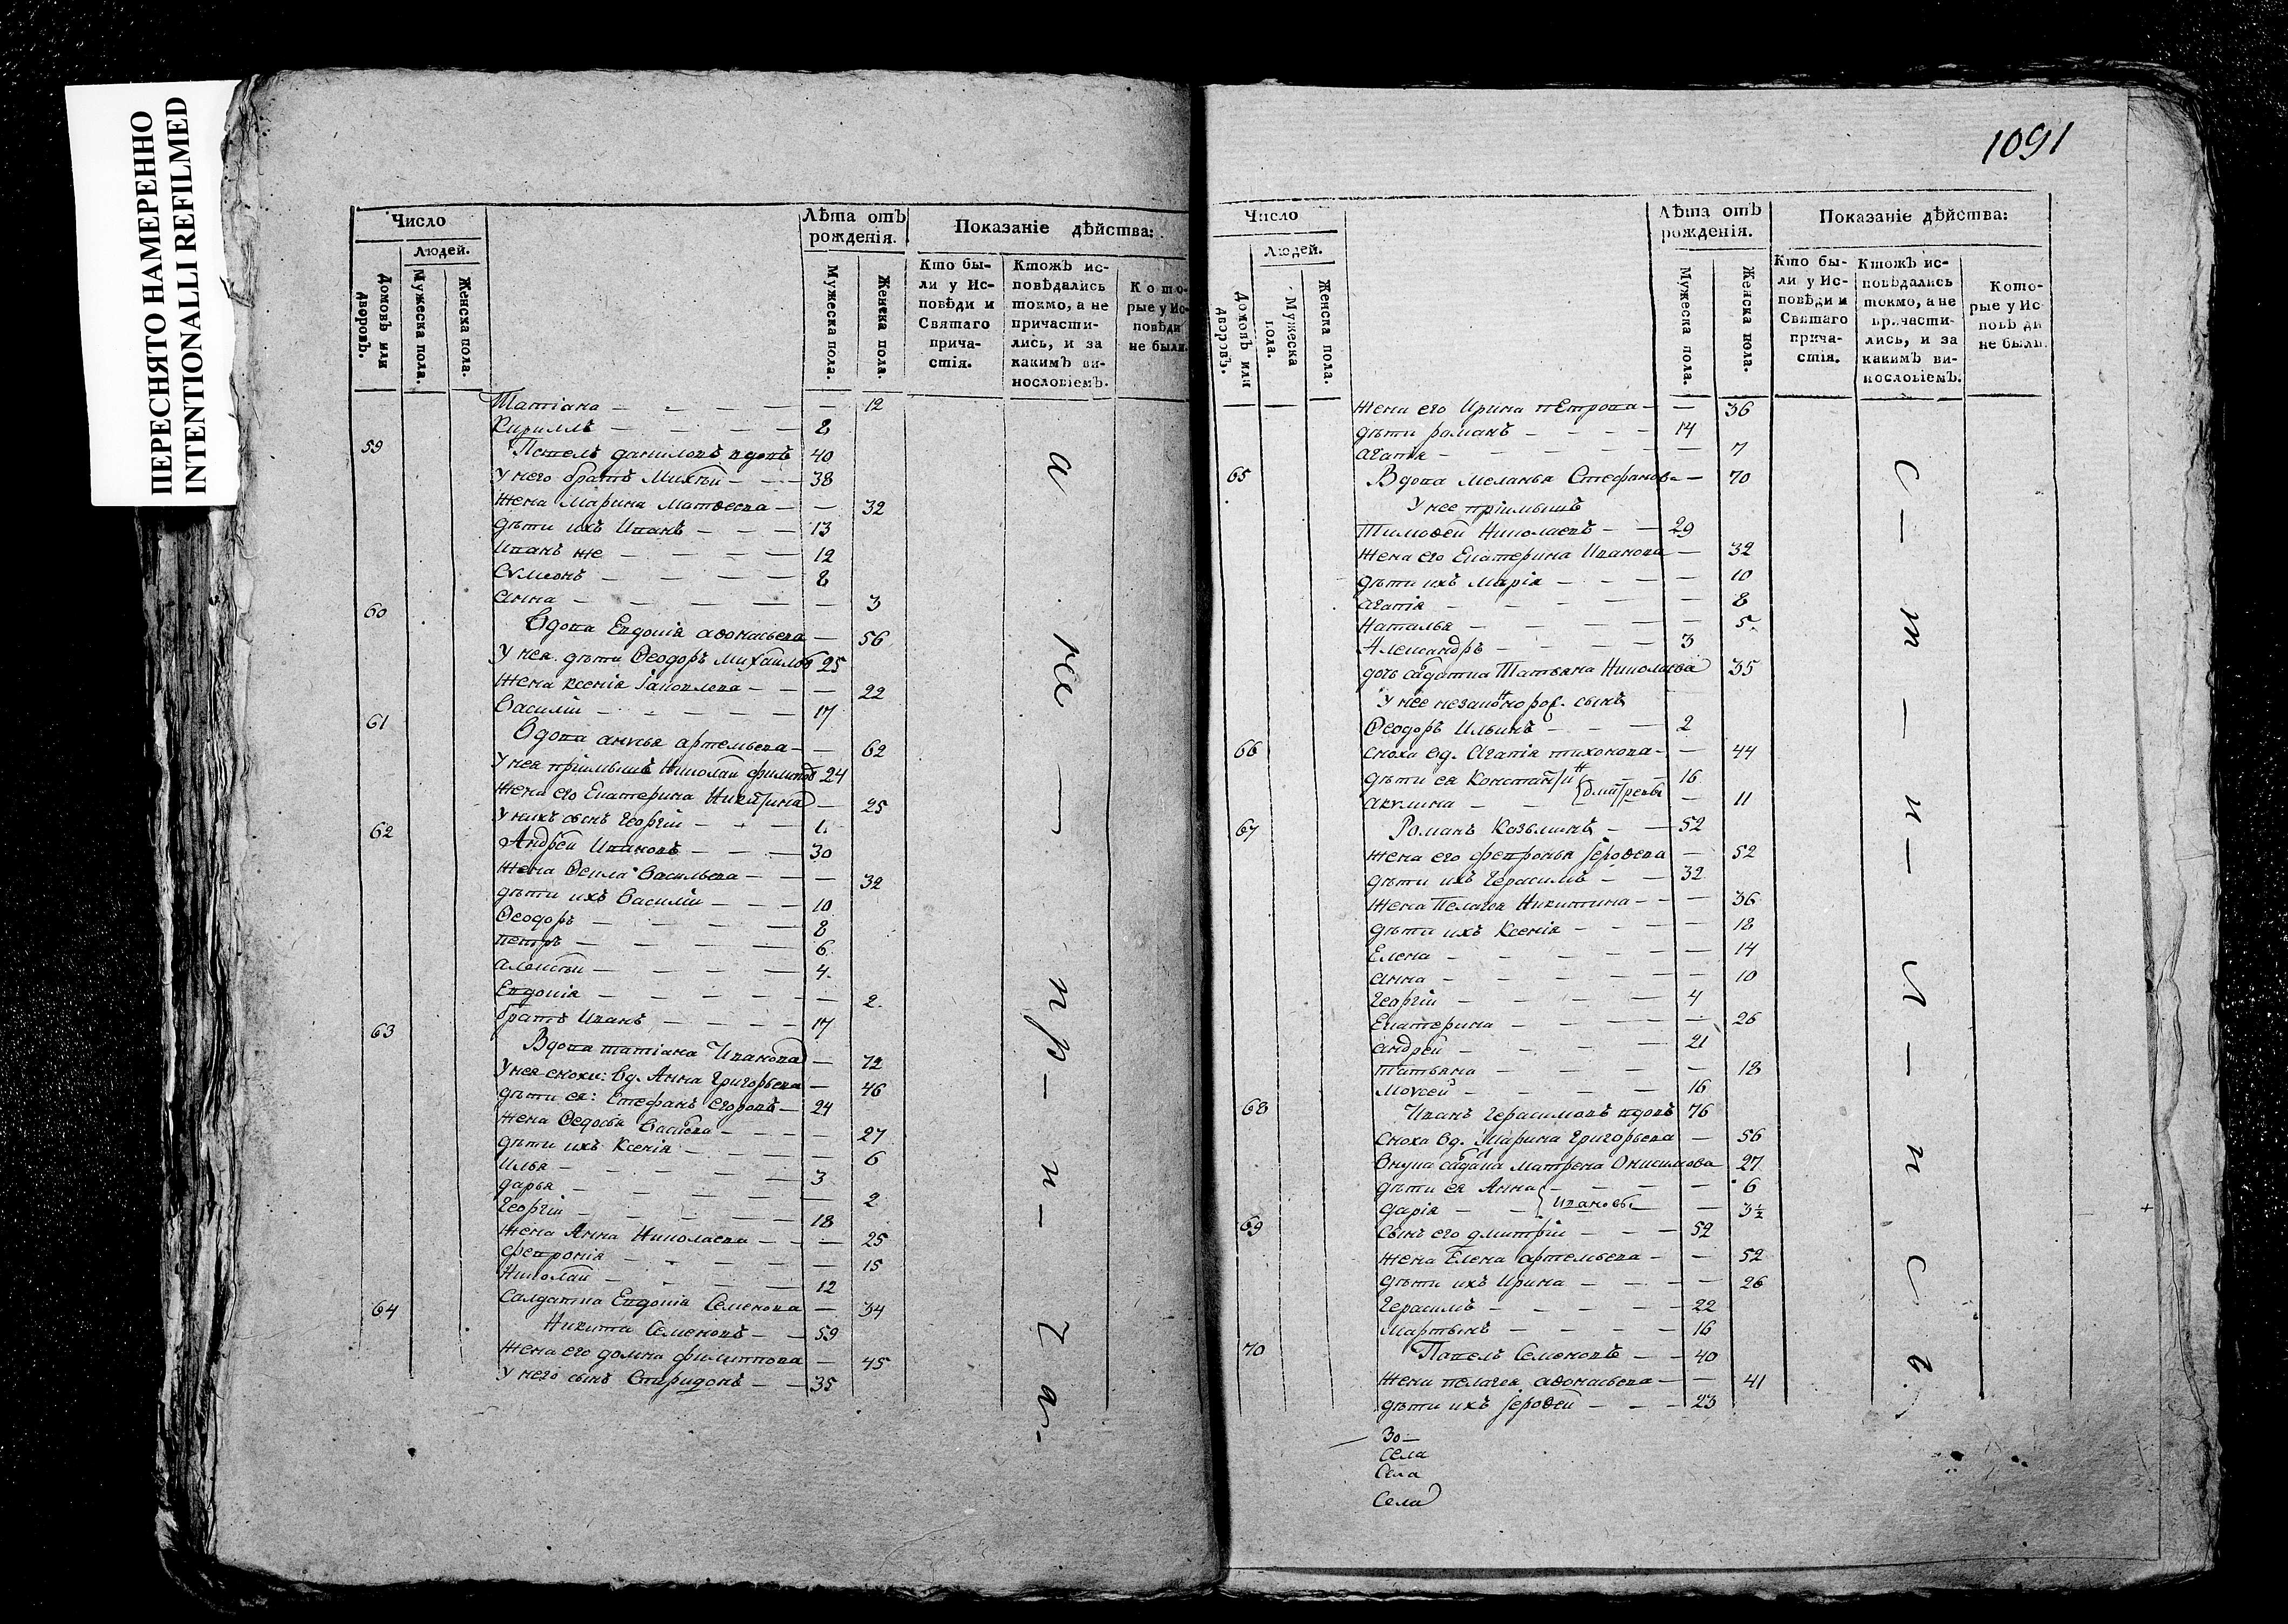 ПЕРЕСНЯТО НАМЕРЕННО
INTENTIONALLI REFILMED
Число
Людей.
Домовъ или дворовъ.
Мужеска пола.
Женска пола.
Лѣта отъ рожденія.
Мужеска пола.
Женска пола.
Показаніе дѣйства:
Кто бы-
ли у Ис-
повѣди и
Святаго
прича-
стія.
Ктожъ ис-
повѣдались
токмо, а не
причасти-
лись, и за
какимъ ви-
нословіемъ.
Кото-
рые у Ис-
повѣди
не были.
Татіана — 12
Кириллъ — 8
59 Павелъ Даниловъ вдовъ 40
У него братъ Михѣй — 38
Жена Марина Матѳеева — 32
дѣти ихъ Иванъ — 13
Иванъ же — 12
Сѵмеонъ — 8
Анна — 3
60 Вдова Евдокія Аѳонасьева — 56
У нея дѣти Ѳеодоръ Михайловъ 25
Жена Ксенія Іаковлева — 22
Василій — 17
61 Вдова Артемьева — 62
У нея пріимышъ Николай Филиповъ 24
Жена его Екатерина Никитина — 25
У нихъ сынъ Георгій — 1
62 Андрей Ивановъ — 30
Жена Ѳекла Васильева — 32
дѣти ихъ Василій — 10
Ѳеодоръ — 8
Петръ — 6
Алексѣй — 4
Евдокія — 2
братъ Иванъ — 17
63 Вдова Татіана Иванова — 72
У нея сноха: вд. Анна Григорьева — 46
дѣти ея: Стефанъ Егоровъ — 24
Жена Ѳедосья — 27
дѣти ихъ Ксенія — 6
Илья — 3
Дарья — 2
Георгій — 18
Жена Анна Николаева — 25
Февронія — 15
Николай — 12
Салдатка Евдокія Семенова — 34
64 Никита Семеновъ — 59
Жена его Домна Филиппова — 45
У него сынъ Спиридонъ — 35
а
пр — и —
ча
1091
Число
Людей.
Домовъ или дворовъ.
Мужеска пола.
Женска пола.
Лѣта отъ рожденія.
Мужеска пола.
Женска пола.
Показаніе дѣйства:
Кто бы-
ли у Ис-
повѣди и
Святаго
прича-
стія.
Ктожъ ис-
повѣдались
токмо, а не
причасти-
лись, и за
какимъ ви-
нословіемъ.
Кото-
рые у Ис-
повѣ ди
не были.
Жена его Ирина Петрова — 36
дѣти Романъ — 14
Агапія — 7
65 Вдова Меланья Стефанова — 70
У нее пріимышъ
Тимоѳей Николаевъ — 29
Жена его Екатерина Иванова — 32
дѣти ихъ Марія — 10
Агапія — 8
Наталья — 5
Александръ — 3
дочь садатка Татьяна Николаева 35
У нее незаконнорож. сынъ
Ѳеодоръ Ильинъ — 2
66 сноха вд. Агапія Тихонова — 44
дѣти ея Константинъ — 16
Акулина — Дмитревы — 11
67 Романъ Козьминъ — 52
Жена его Февронья Іероѳева — 52
дѣти ихъ Герасимъ — 32
Жена Пелагея Никитина — 36
дѣти ихъ Ксенія — 18
Елена — 14
Анна — 10
Георгій — 4
Екатерина — 26
Андрей — 21
Татьяна — 18
Моѵсей — 16
68 Иванъ Герасимовъ вдовъ 76
Сноха вд. Марина Григорьева — 56
внука Матрена Онисимова 27
дѣти ея Анна — 6
Дарія — Ивановы — 3½
69 Сынъ его Дмитрій — 52
Жена Елена Артемьева — 52
дѣти ихъ Ирина — 26
Герасимъ — 22
Мартынъ — 16
70 Павелъ Семеновъ — 40
Жена Пелагея Аѳонасьева — 41
дѣти ихъ Іероѳей — 23
с — т — и — л — и с
30 —
Села
Села
Села